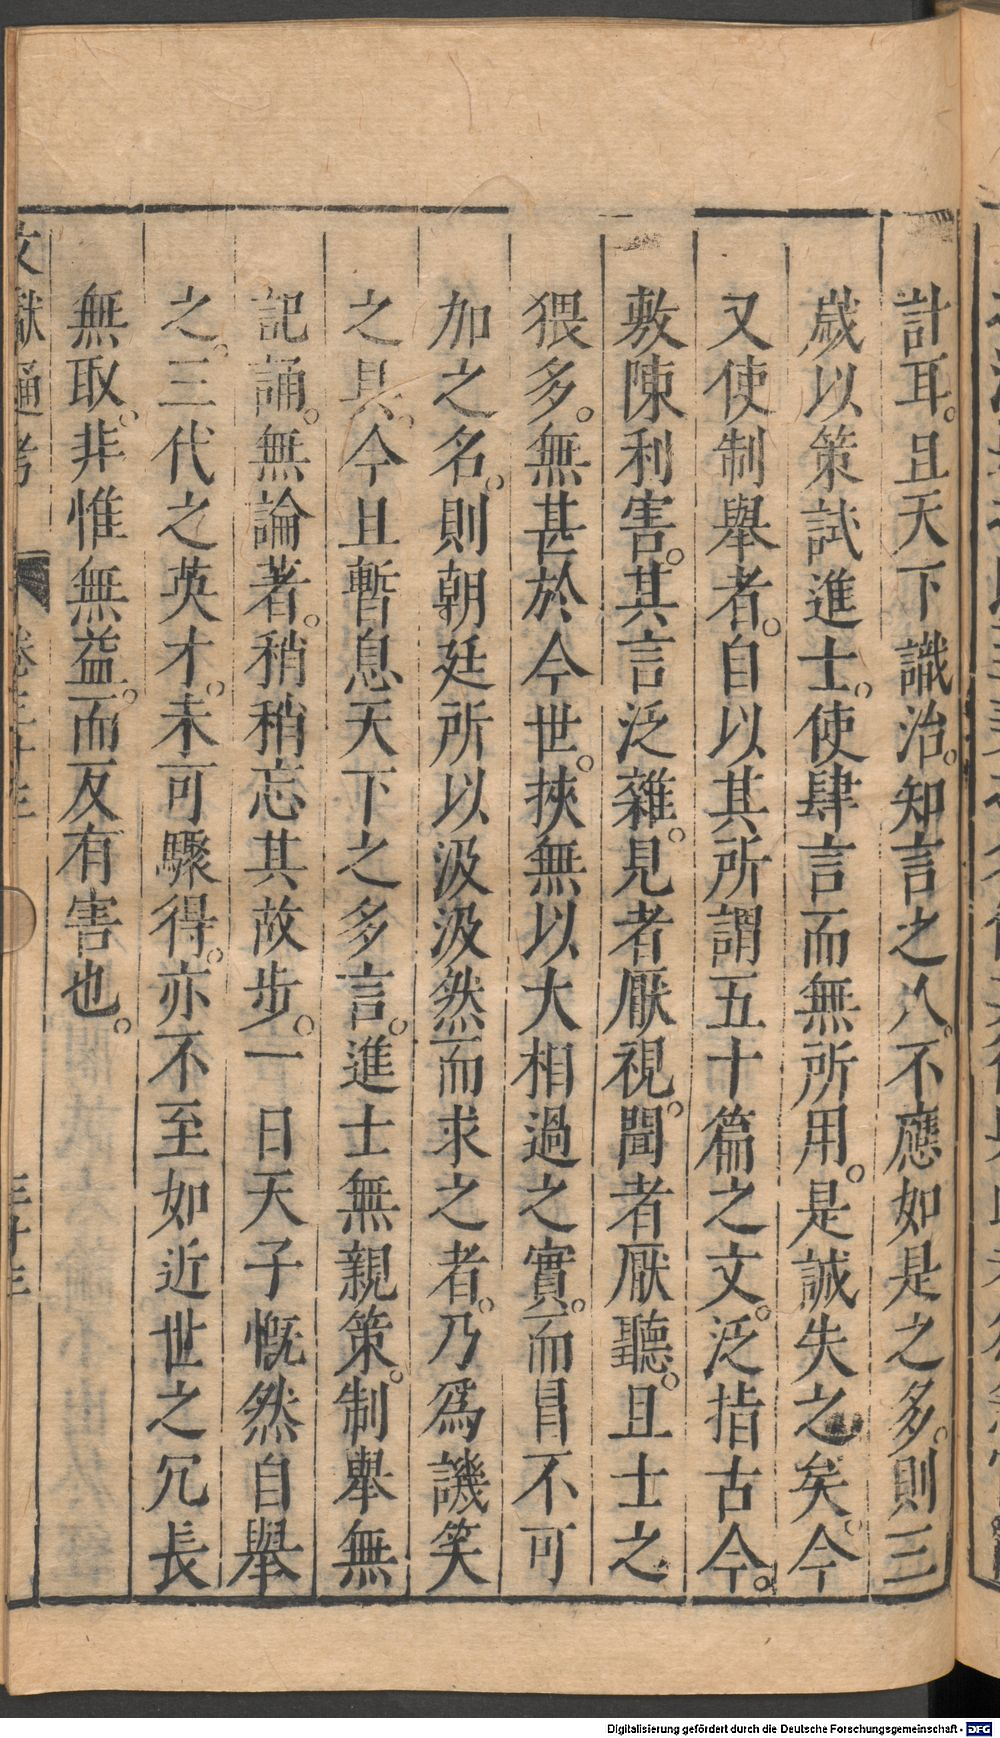 計耳。且天下識治。知言之人。不應如是之多。則三
歲以策試進士。使肆言而無所用。是誠失之矣。今
又使制舉者。自以其所謂五十篇之文。泛指古今。
敷陳利害。其言泛雜。見者厭視。聞者厭聽。且士之
猥多。無甚於今世。挾無以大相過之實。而冒不可
加之名。則朝廷所以汲汲然而求之者。乃爲譏笑
之具。今且暫息天下之多言。進士無親策。制舉無
記誦。無論著。稍稍忘其故步。一日天子慨然自舉
之。三代之英才。未可驟得。亦不至如近世之冗長
無取。非惟無益。而反有害也。
文獻通考 卷三十三 三十三
Digitalisierung gefördert durch die Deutsche Forschungsgemeinschaft - DFG